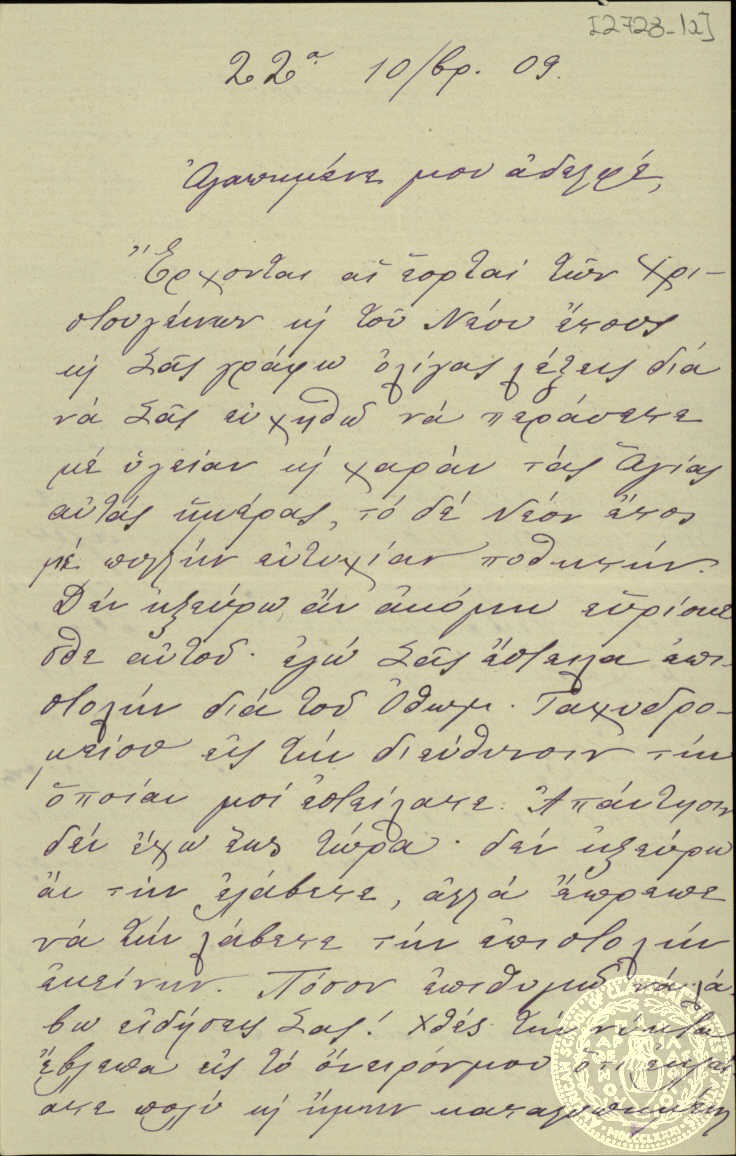 [2728-12]
22α 10/βρ. 09.
Ἀγαπημένε μου ἀδελφέ,
Ἔρχονται αἱ ἑορταί τῶν Χρι-
στουγέννων κ᾽ τοῦ Νέου ἔτους
κ᾽ Σᾶς γράφω ὀλίγας λέξεις διά
νά Σᾶς εὐχηθῶ νά περάσετε
μέ ὑγείαν κ᾽ χαράν τάς Ἁγίας
αὐτάς ἡμέρας, τό δέ Νέον ἔτος
μέ πολλήν εὐτυχίαν ποθητήν.
Δέν ἠξεύρω ἄν ἀκόμη εὑρίσκε
σθε αὐτοῦ· ἐγώ Σᾶς ἔστειλα ἐπι-
στολήν διά τοῦ Ὀθωμ. Ταχυδρο-
μείου εἰς τήν διεύθυνσιν τήν
ὁποίαν μοί ἐστείλατε. Ἀπάντησιν
δέν ἔχω ἕως τώρα· δέν ἠξεύρω
ἄν τήν ἐλάβετε, ἀλλά ἔπρεπε
νά τήν λάβετε τήν ἐπιστολήν
ἐκείνην. Πόσον ἐπιθυμῶ νά λά-
βω εἰδήσεις Σας! Χθές τήν νύκτα
ἔβλεπα εἰς τό ὄνειρόν μου ὅτι
σте πολύ κ᾽ ἤμην καταλυπημένη